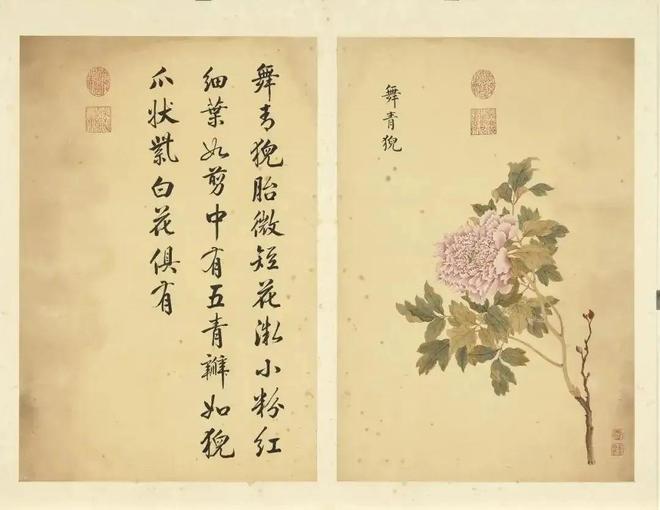 舞青猊
舞青猊胎微短花微小粉紅
細葉如剪中有五青瓣如猊
爪狀紫白花俱有